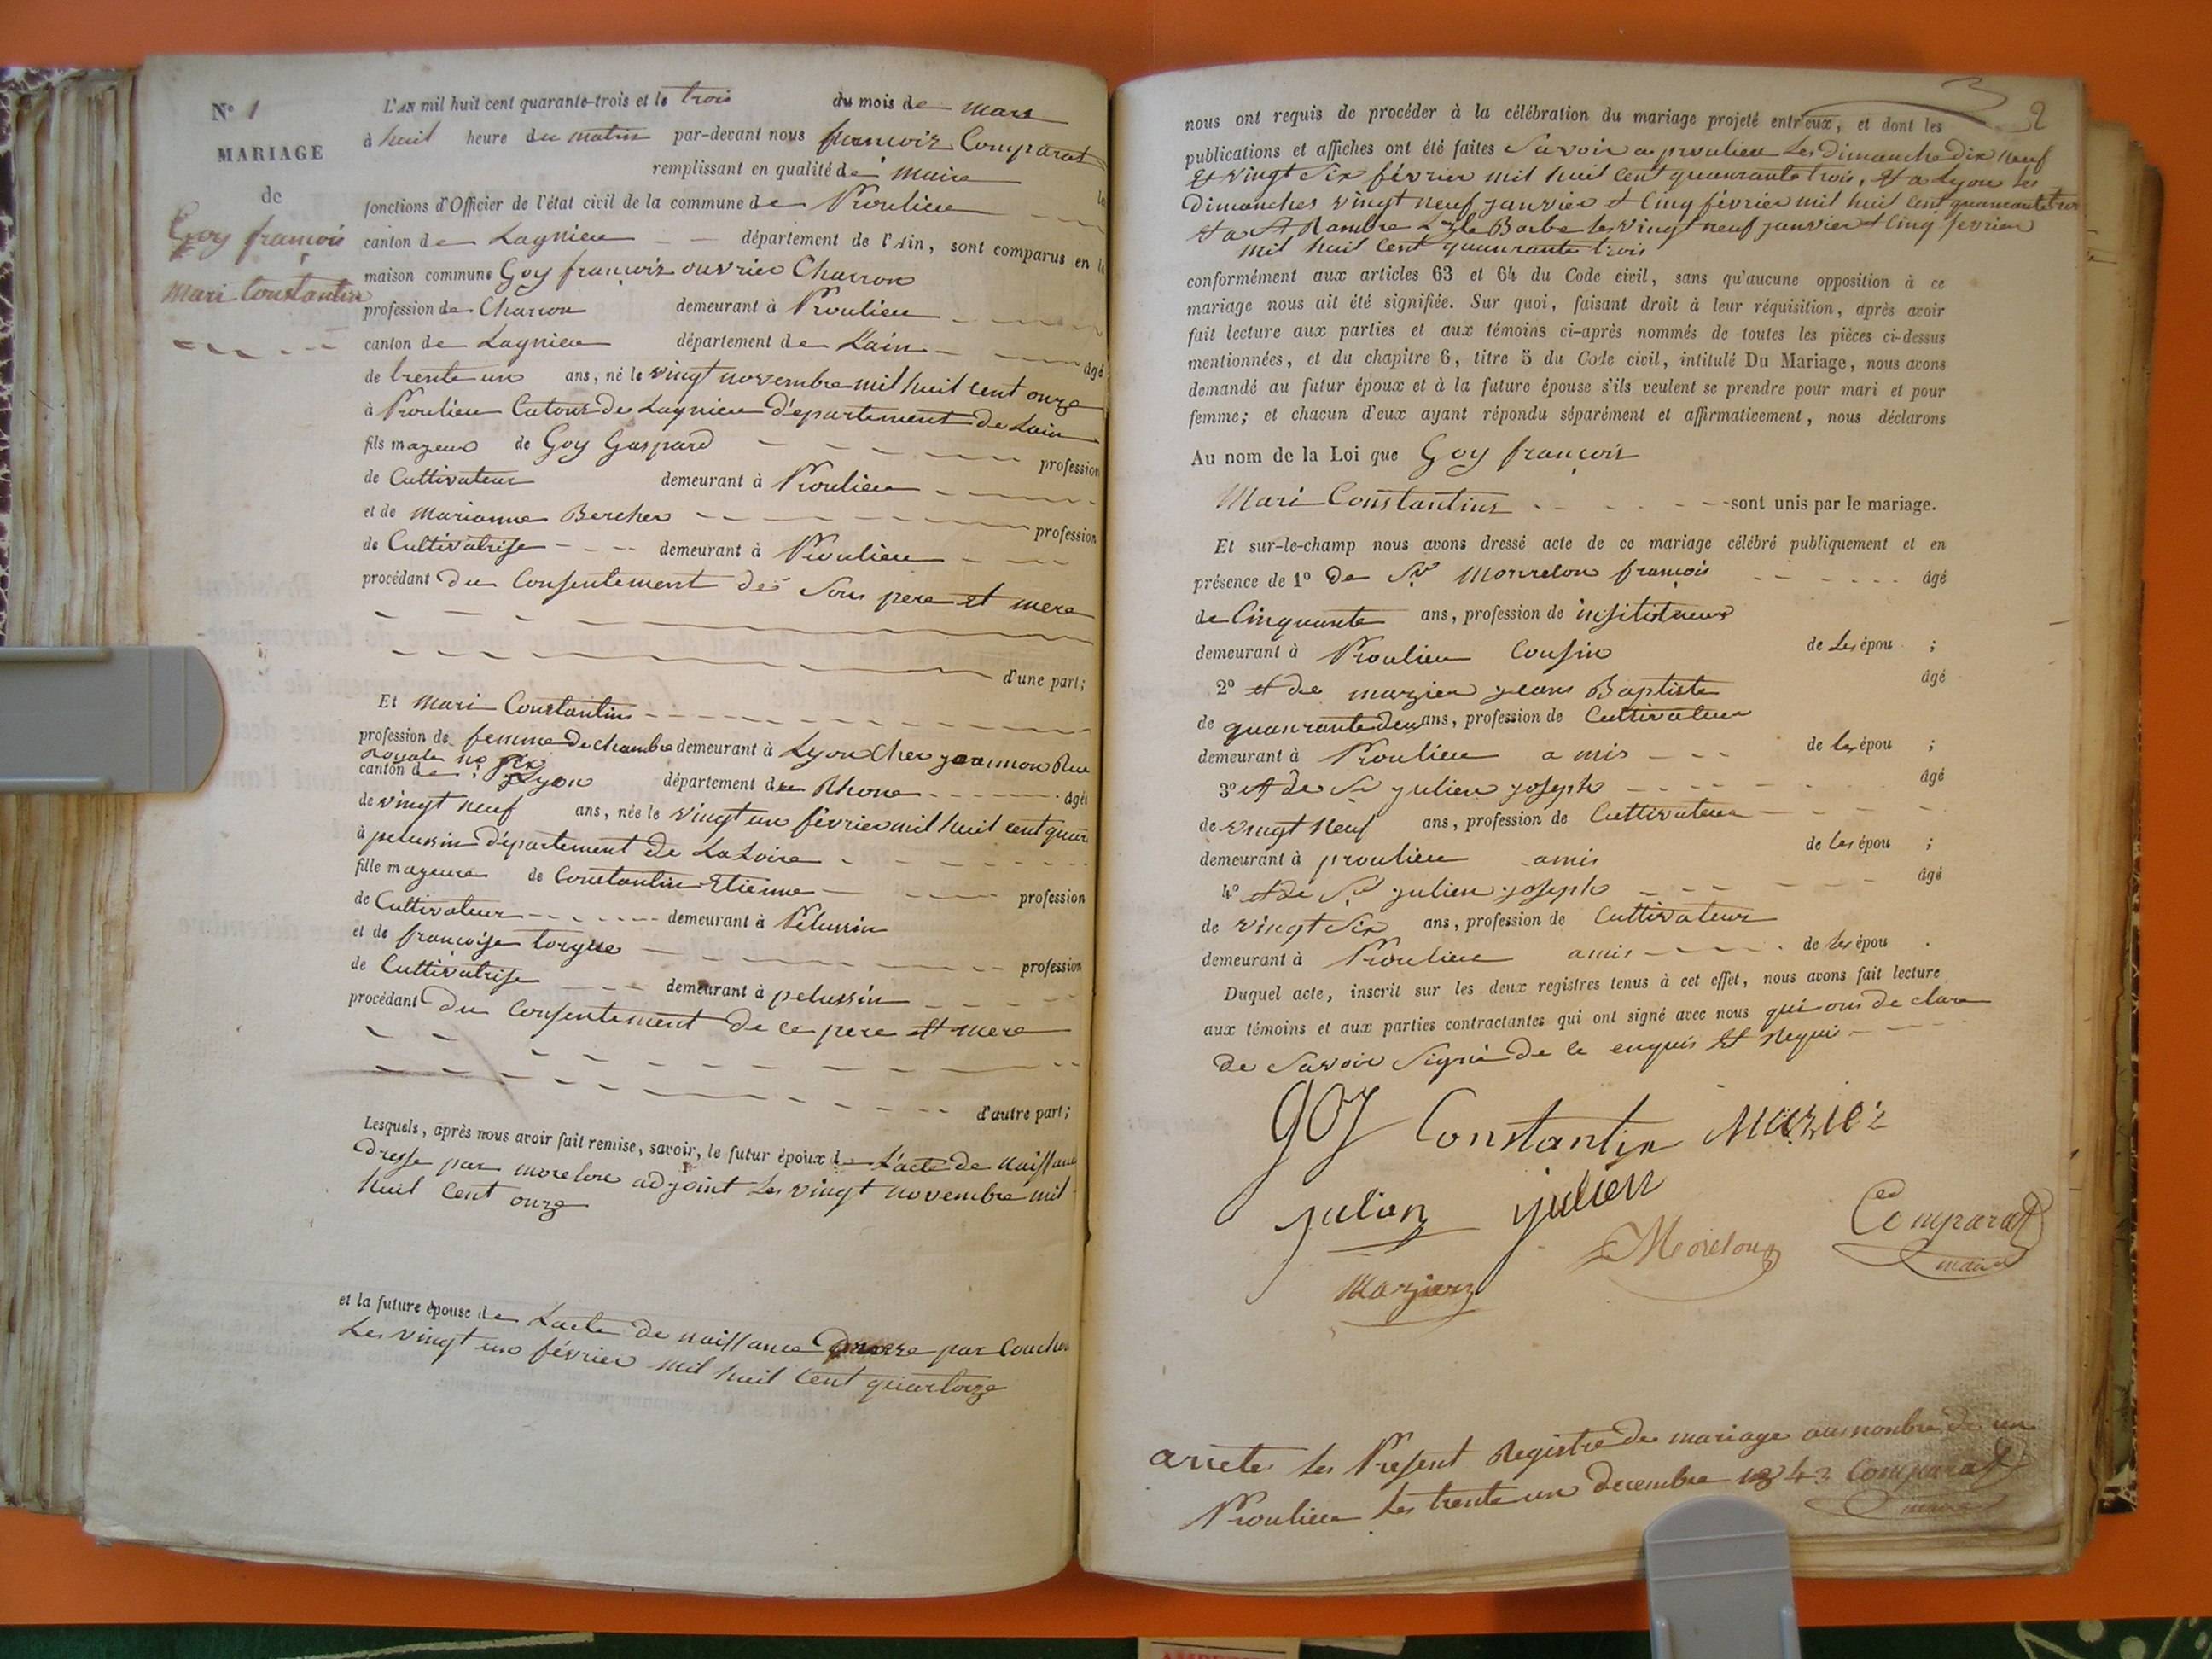 N° 1
MARIAGE
de
Goy françois
Mari Constantin
L'AN mil huit cent quarante-trois et le trois du mois de mars
à huit heure du matin par-devant nous françois Comparat
remplissant en qualité de maire les
fonctions d'Officier de l'état civil de la commune de Proulieu
canton de Lagnieu département de l'Ain, sont comparus en la
maison commune Goy françois ouvrier Charron
profession de Charron demeurant à Proulieu
canton de Lagnieu département de Lain âgé
de trente un ans, né le vingt novembre mil huit cent onze
à Proulieu Catons de Lagnieu département de Lain
fils mageur de Goy Gaspard profession
de Cultivateur demeurant à Proulieu
et de marianne Bercher profession
de Cultivatrise demeurant à Proulieu
procédant du Consentement de Sons pere et mere
d'une part;
Et Mari Constantins
profession de femme de chambre demeurant à Lyon Cher Rue
royale no six
canton de Lyon département du Rhone âgée
de vingt neuf ans, née le vingt un février mil huit cent quar
à pelussin département de La Loire
fille mageure de Constantin Etienne profession
de Cultivateur demeurant à Pelussin
et de françoise torgue profession
de Cultivatrise demeurant à pelussin
procédant du Consentement de ce pere et mere
d'autre part;
Lesquels, après nous avoir fait remise, savoir, le futur époux de L'acte de naissance
Dresse par morelon adjoint Les vingt novembre mil
huit cent onze
et la future épouse de Lacte de naissance par Coucher
Les vingt un février mil huit Cent quartorze
2
nous ont requis de procéder à la célébration du mariage projeté entr'eux, et dont les
publications et affiches ont été faites Savoir a proulieu Les dimanche dix neuf
Et vingt Six février mil huit Cent quanrante trois, Et a Lyon les
Dimanches vingt neuf janvier et Cinq février mil huit Cent quanrante trois
Et a St Rambre L'yle Barbe les vingt neuf janvier et Cinq fevrier
mil huit Cent quanrante trois
conformément aux articles 63 et 64 du Code civil, sans qu'aucune opposition à ce
mariage nous ait été signifiée. Sur quoi, faisant droit à leur réquisition, après avoir
fait lecture aux parties et aux témoins ci-après nommés de toutes les pièces ci-dessus
mentionnées, et du chapitre 6, titre 5 du Code civil, intitulé Du Mariage, nous avons
demandé au futur époux et à la future épouse s'ils veulent se prendre pour mari et pour
femme; et chacun d'eux ayant répondu séparément et affirmativement, nous déclarons
Au nom de la Loi que Goy françois
Mari Constantins sont unis par le mariage.
Et sur-le-champ nous avons dressé acte de ce mariage célébré publiquement et en
présence de 1° De Sr Morrelon françois âgé
de Cinquante ans, profession de instititueur
demeurant à Proulieu Cousin de Les épou ;
2° et de mazier jeans Baptiste âgé
de quanrante deux ans, profession de Cultivateur
demeurant à Proulieu amis de les épou ;
3° et de Sr julien joseph âgé
de vingt Neuf ans, profession de Cultivateur
demeurant à proulieu amis de les épou ;
4° et de Sr julien joseph âgé
de vingt Six ans, profession de Cultivateur
demeurant à Proulieu amis de les épou .
Duquel acte, inscrit sur les deux registres tenus à cet effet, nous avons fait lecture
aux témoins et aux parties contractantes qui ont signé avec nous qui ons de clare
de Savoir Signé de ce enquis et Requis
goy Constantin Mariez
julien julien
Morelon Comparat
maire
Mazier
arrete Les Present Registre de mariage au nonbre de un
Proulieu Les trente un decembre 1843 Comparat
maire